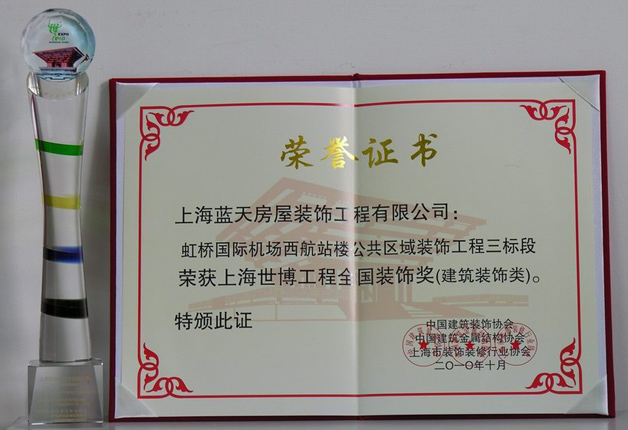 EXPO
荣誉证书
上海蓝天房屋装饰工程有限公司：
虹桥国际机场西航站楼公共区域装饰工程三标段
荣获上海世博工程全国装饰奖(建筑装饰类)。
特颁此证
中国建筑装饰协会
中国建筑金属结构协会
上海市装饰装修行业协会
二〇一〇年十月